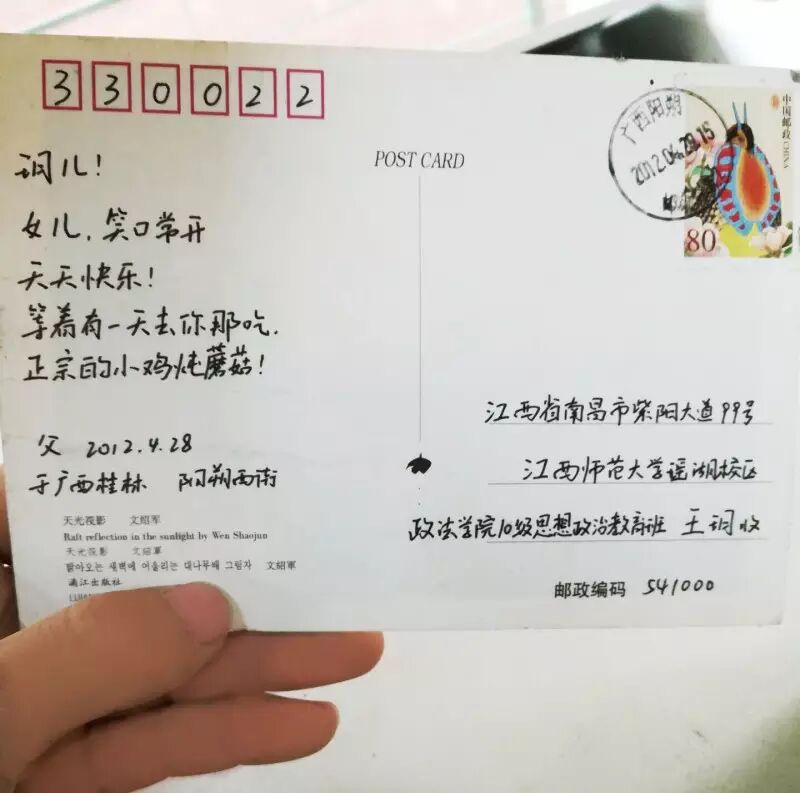 330022
POST CARD
广西阳朔
2012.04.28.15
中国邮政 CHINA
80
诩儿!
女儿,笑口常开
天天快乐!
等着有一天去你那吃,
正宗的小鸡炖蘑菇!
父 2012.4.28
于广西桂林 阳朔西街
天光筏影 文绍军
Raft reflection in the sunlight by Wen Shaojun
天光筏影 文紹軍
밝아오는 새벽에 어울리는 대나무배 그림자 文紹軍
漓江出版社
江西省南昌市紫阳大道99号
江西师范大学瑶湖校区
政法学院10级思想政治教育班 王诩收
邮政编码 541000